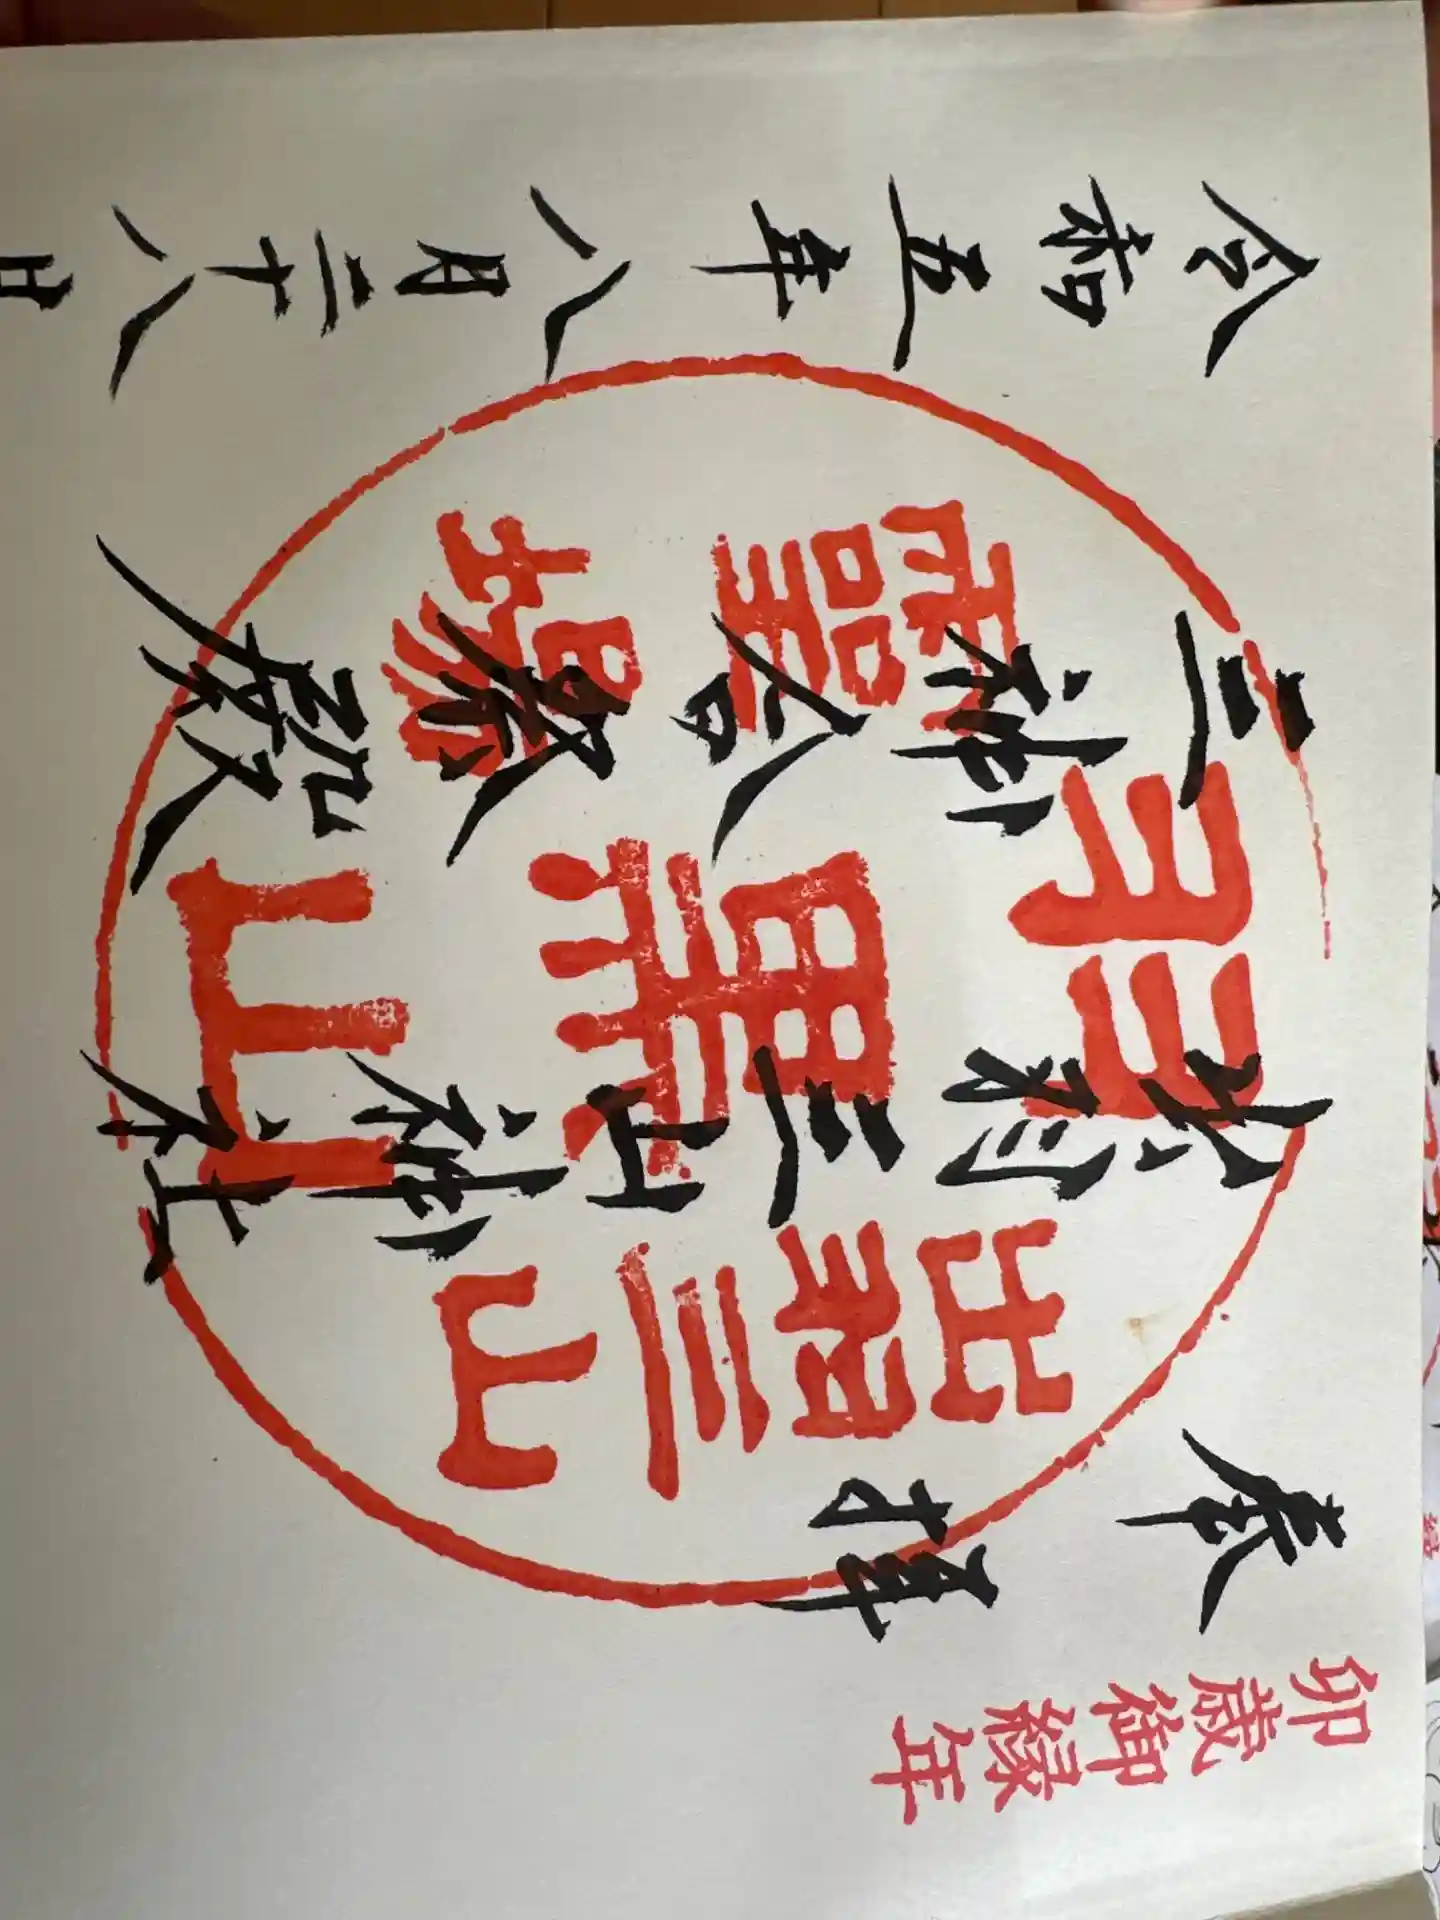 卯歳御縁年
奉拝
出羽三山神社
三神合祭殿
令和五年八月二十八日
出羽三山
羽黒山
靈場